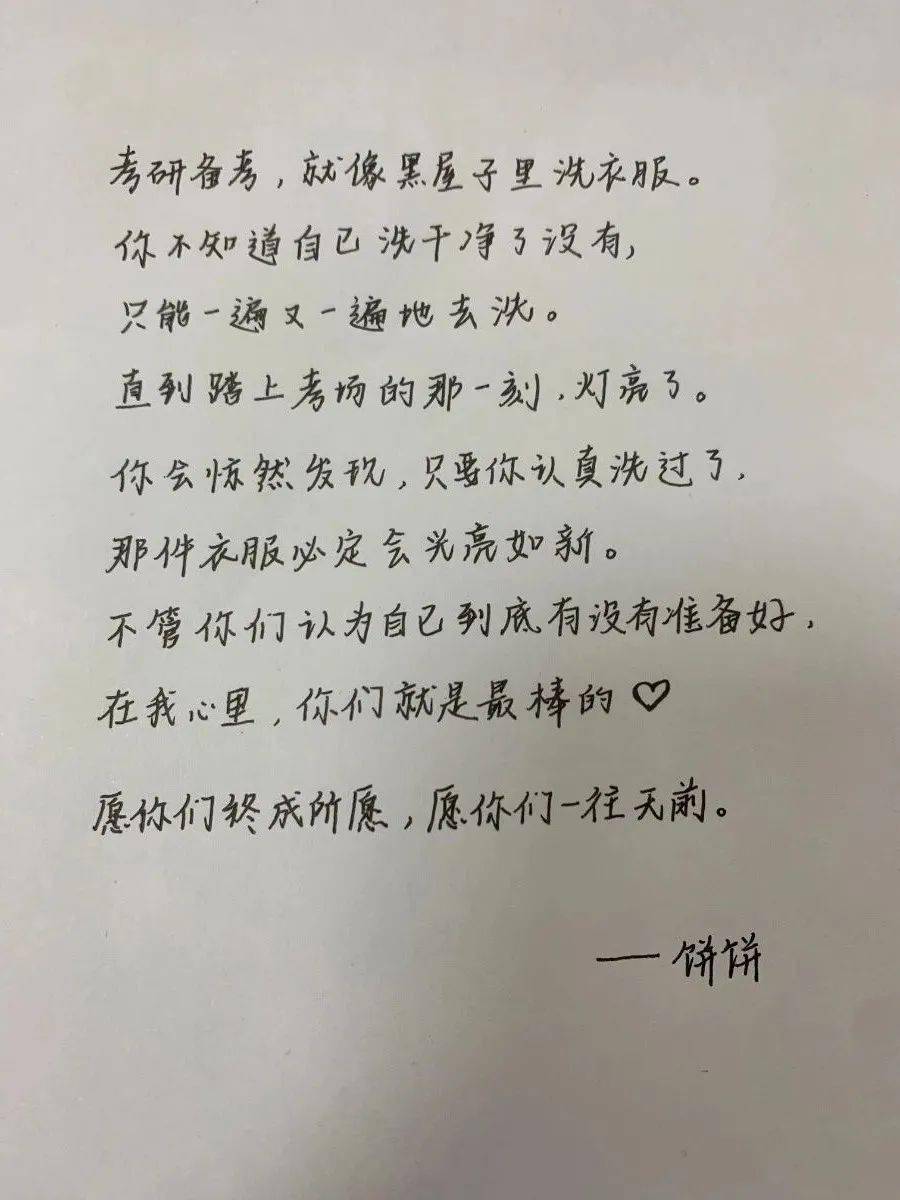 考研备考，就像黑屋子里洗衣服。
你不知道自己洗干净了没有，
只能一遍又一遍地去洗。
直到踏上考场的那一刻，灯亮了。
你会惊然发现，只要你认真洗过了，
那件衣服必定会光亮如新。
不管你们认为自己到底有没有准备好，
在我心里，你们就是最棒的♡
愿你们终成所愿，愿你们一往无前。
——饼饼